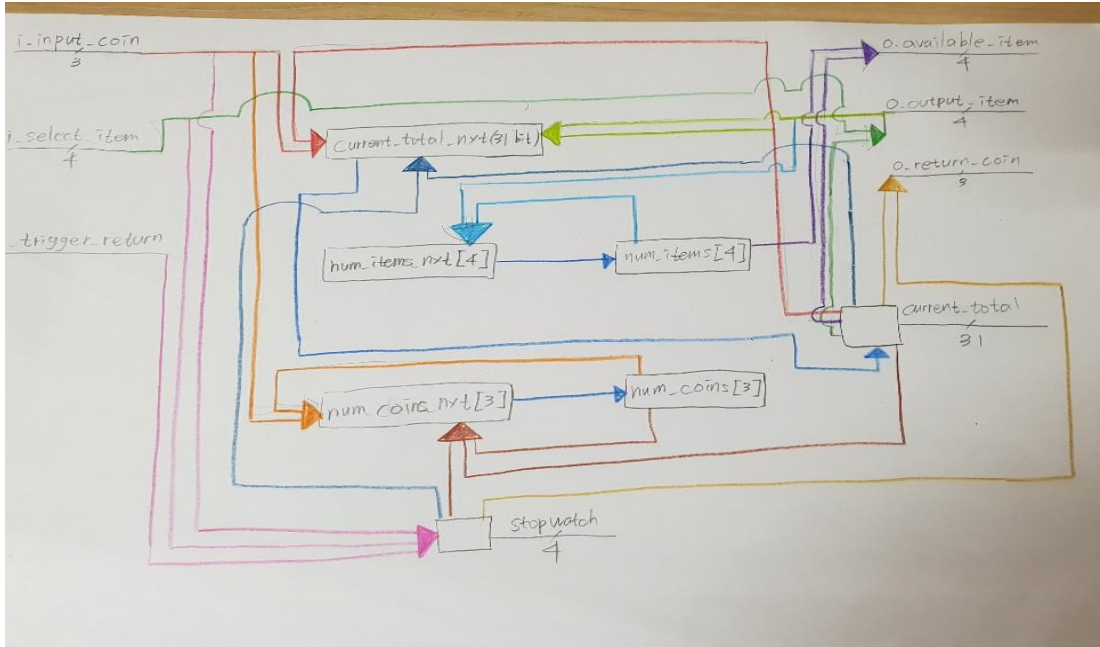 i_input_coin
3
i_select_item
4
_trigger_return
current_total_nxt(31 bit)
num_items_nxt[4]
num_items[4]
num_coins_nxt[3]
num_coins[3]
stopwatch
4
o_available_item
4
o_output_item
4
o_return_coin
3
current_total
31